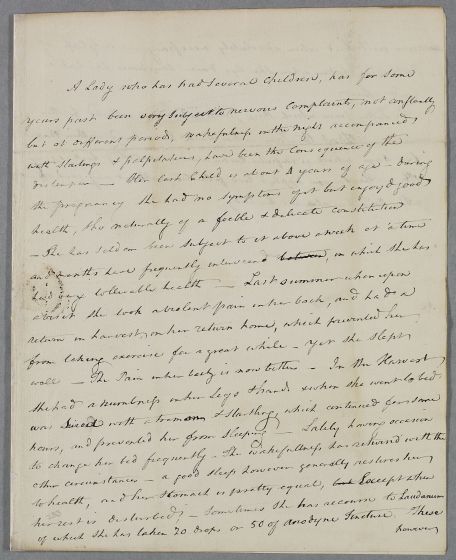 A Lady who has had several Children, has for some
years past been very subject to nervous Complaints, not constantly
but at different periods, wakefulness in the night accompanied
with Startings & palpitations, have been the Consequence of the
— Her last Child is about 4 years of age — During
the pregnancy she had no symptoms of it but enjoy'd good
health, tho naturally of a feeble & delicate constitution
— She has seldom been subject to it above a week at a time
and months have frequently intervened between, in which she has
had very tollerable health — Last Summer when upon
a visit she took a violent pain in her back, and had a
return in harvest, on her return home, which prevented her
from taking exercise for a great while — yet she slept
well — The Pain in her body is now better — In the Harvest
she had a numbness in her Legs & hands & when she went to bed
was seized with a & Startling which continued for some
hours, and prevented her from Sleeping — Lately having occasion
to change her bed frequently — the wakefulness has returned with the
other circumstances — a good sleep however generally restores her
to health, and her Stomach is pretty equal, but Except when
her rest is disturbed, — Sometimes she has recourse to Laudanum
of which she has taken 20 drops or 50 of anodyne Tincture. These
however